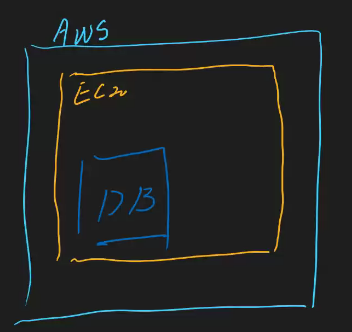 AWS
EC2
DB